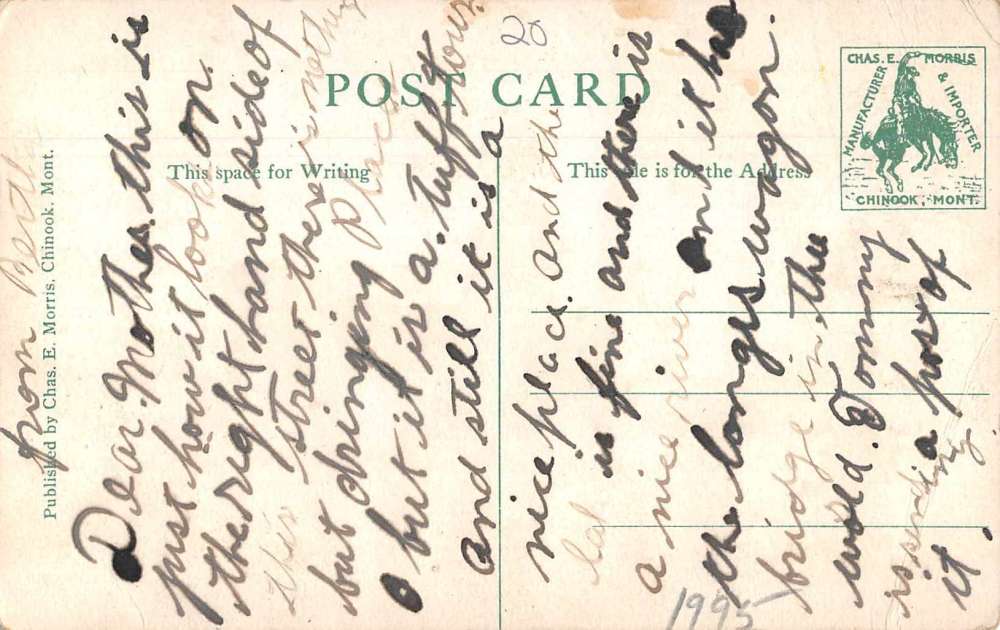 20
POST CARD
This space for Writing
This side is for the Address
CHAS. E. MORRIS
MANUFACTURER & IMPORTER
CHINOOK, MONT.
Published by Chas. E. Morris, Chinook, Mont.
from
Dear Mother this is
just how it looks on
the right hand side of
this street there is nothing
but drinying place
but it is a tuff town
and still it is a
nice place and the
is fine and there is
a nice river and it has
the longis wagon
bridge in the
wold. Tommy
is sending a post of
it.
1995